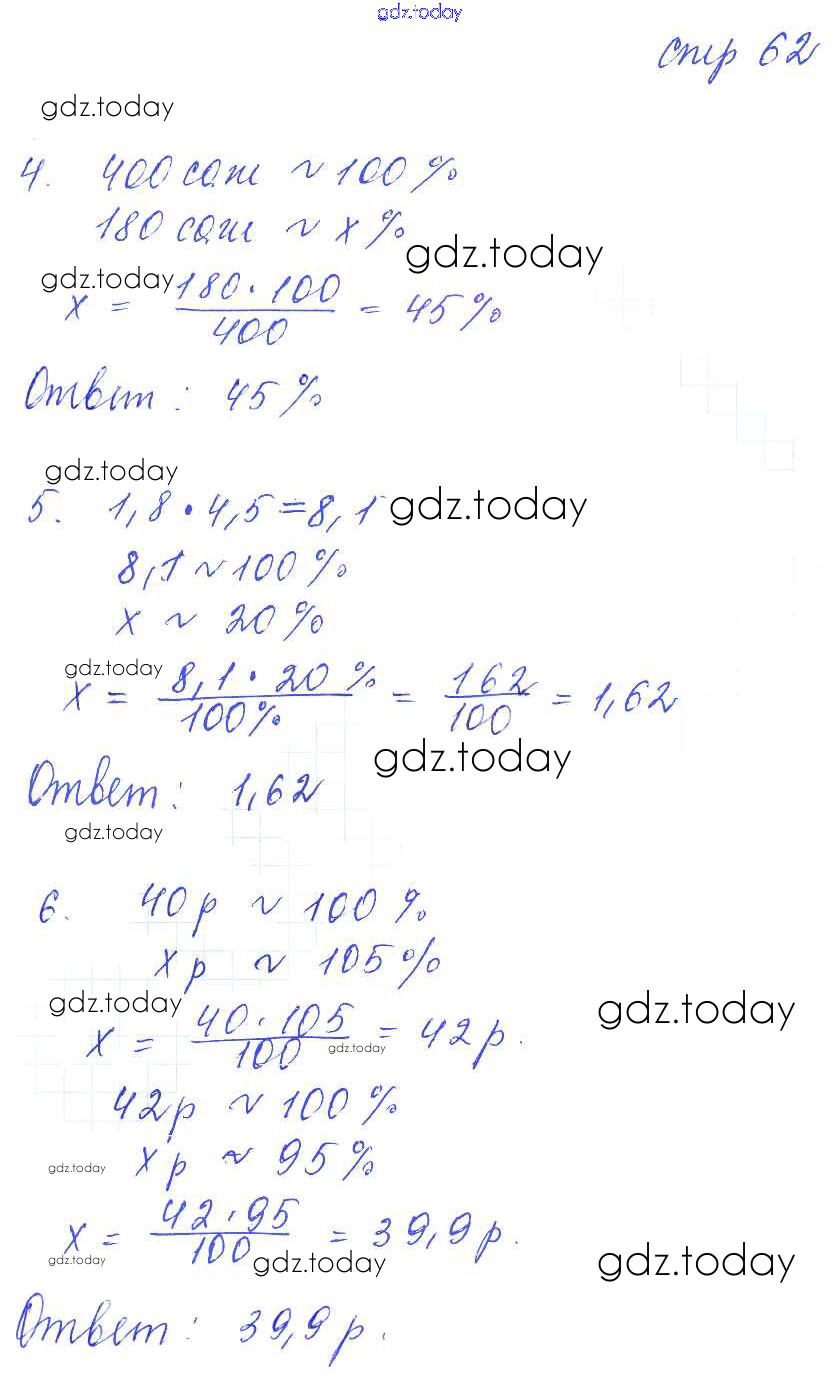 gdz.today
стр 62
gdz.today
4. 400 саж ~ 100 %
180 саж ~ x %
gdz.today
gdz.today
x = 180 · 100 / 400 = 45 %
Ответ : 45 %
gdz.today
5. 1,8 · 4,5 = 8,1
gdz.today
8,1 ~ 100 %
x ~ 20 %
gdz.today
x = 8,1 · 20 % / 100 % = 162 / 100 = 1,62
gdz.today
Ответ : 1,62
gdz.today
6. 40 р ~ 100 %
x р ~ 105 %
gdz.today
gdz.today
x = 40 · 105 / 100 = 42 р.
gdz.today
42 р ~ 100 %
x р ~ 95 %
gdz.today
x = 42 · 95 / 100 = 39,9 р.
gdz.today
gdz.today
gdz.today
Ответ : 39,9 р.